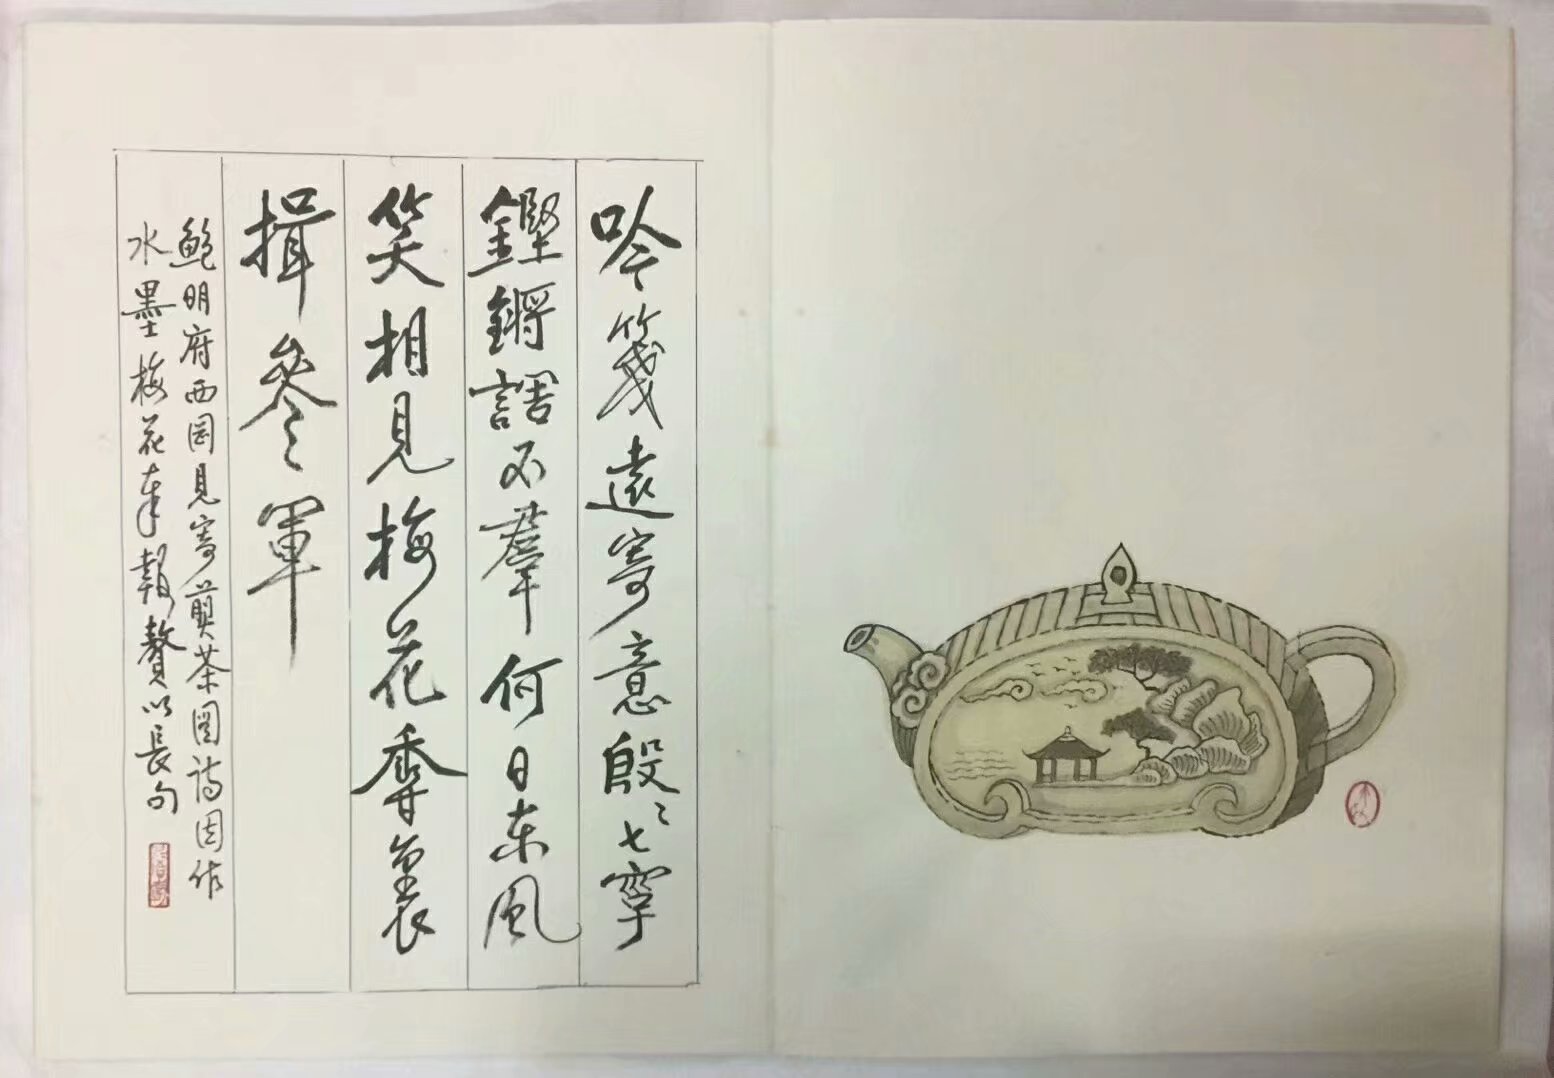 吟箋遠寄意殷〻七字
鏗鏘調不羣何日东風
笑相見梅花香裏
揖參軍
鮑明府西园見寄煎茶圖詩因作
水墨梅花奉報贅以長句